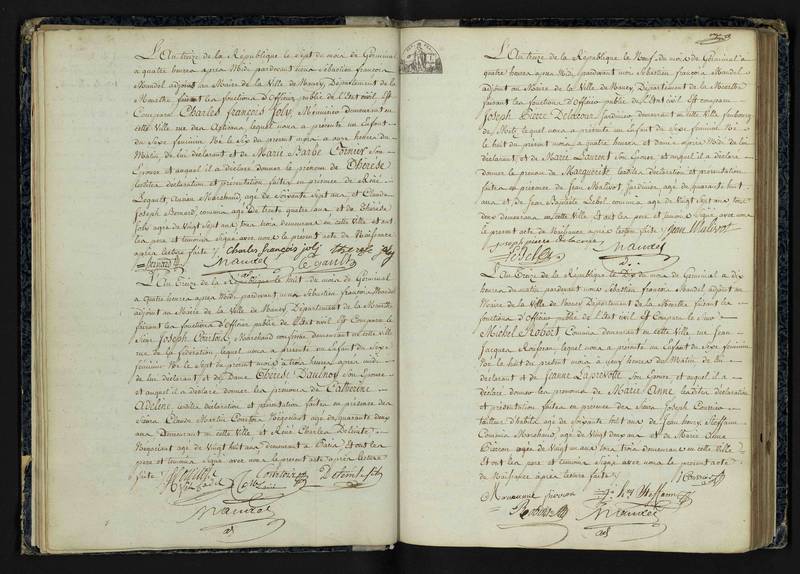 L'An treize de la République le Sept du mois de Germinal
a quatre heures après Midi, pardevant nous Sébastien françois
Mandel adjoint au Maire de la Ville de Nancy, Département de la
Meurthe faisant les fonctions d'Officier public de l'Etat civil Est
Comparu Charles françois Joly, Menuisier demeurant en
cette Ville rue des lequel nous a présenté un Enfant
du Sexe féminin Né le Six du présent mois à onze heures du
Matin, de lui déclarant et de Marie Barbe Cornier Son
Epouse et auquel il a déclaré donner le prénom de Thérèse
lesdites déclaration et présentation faites en présence de René
Legault, Marchand, age de Soixante Sept ans et Claude
Joseph Bernard, commis, agé de trente quatre ans et de Thérèse
Joly agée de Vingt Sept ans tous trois demeurans en cette Ville et ont
les pere et temoins Signé avec nous le présent acte de Naissance
après lecture faite Charles françois joly therese joly
bernard Mandel Legault
L'An treize de la République le huit du mois de Germinal
a quatre heures après Midi, pardevant nous Sébastien françois Mandel
adjoint au Maire de la Ville de Nancy Département de la Meurthe
faisant les fonctions d'Officier public de l'Etat civil Est Comparu le
Sieur Joseph Cointoin, Marchand demeurant en cette ville
rue de la fédération lequel nous a présenté un Enfant du Sexe
féminin Né le Sept du présent mois à trois heures après midi
de lui déclarant et de Dame Thérèse Daulnoy Son Epouse
et auquel il a déclaré donner les prénoms de Catherine
Adeline lesdites déclaration et présentation faites en présence des
Sieurs Claude Martin Négociant agé de quarante deux
ans Demeurant en cette Ville et René Charles
Négociant agé de Vingt huit ans demeurant à Paris Et ont les
pere et temoins Signé avec nous le présent acte après lecture
faite
Mandel
adj
L'An treize de la République le Neuf du mois de Germinal a
quatre heures après Midi, pardevant nous Sébastien françois Mandel
adjoint au Maire de la Ville de Nancy, Département de la Meurthe
faisant les fonctions d'Officier public de l'Etat civil Est comparu
Joseph Pierre Delacour Jardinier demeurant en cette Ville faubourg
de Metz lequel nous a présenté un Enfant de Sexe féminin Né
le huit du présent mois a quatre heures et demie après Midi de lui
déclarant, et de Marie Laurent Son Epouse et auquel il a déclaré
donner le prénom de Marguerite lesdites déclaration et présentation
faites en présence de Jean Malivot Jardinier age de quarante huit
ans et de Jean Baptiste Lebel commis age de Vingt Sept ans tous
deux demeurans en cette Ville Et ont les pere et temoins Signé avec nous
le présent acte de Naissance après lecture faite Jean Malivot
joseph pierre delacour Mandel
Lebel adj
L'An treize de la République le Dix du mois de Germinal a dix
heures du matin, pardevant nous Sébastien françois Mandel adjoint au
Maire de la Ville de Nancy Département de la Meurthe faisant les
fonctions d'Officier public de l'Etat civil Est Comparu le Sieur
Michel Robert Commis demeurant en cette Ville rue Jean
Jacques Rousseau lequel nous a présenté un Enfant de Sexe féminin
Né le huit du présent mois à onze heures du Matin de lui
déclarant et de Jeanne Laprevotte Son Epouse et auquel il a
déclaré donner les prénoms de Marie Anne lesdites déclaration
et présentation faites en présence des Sieurs Joseph
tailleur d'habits age de Soixante huit ans de Jean henry Hoffman
Commis Marchand, age de Vingt deux ans et de Marie Anne
Pierron agée de Vingt ans tous trois demeurans en cette Ville
Et ont les pere et temoins Signé avec nous le présent acte
de Naissance après lecture faite
Marianne pierron
Robert Mandel
adj